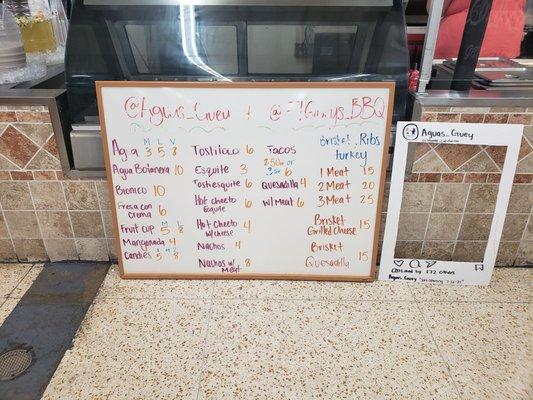 @Aguas_Guey
M L V
Agua 3 5 8
Agua Botanera 10
Bronico 10
Fresa con
crema 6
M L
Fruit cup 5 8
Mangonada 4
Candies 5 8
Tostiloco 6
Esquite 3
Toshesquite 6
Hot Cheeto 6
Esquite
Hot Cheeto 4
w/cheese
Nachos 4
Nachos w/ 8
Meat
BBQ
Tacos
2.50 or
3 for 6
Quesadilla 4
w/Meat 6
Brisket, Ribs
turkey
1 Meat 15
2 Meat 20
3 Meat 25
Brisket 15
Grilled cheese
Brisket
Quesadilla 15
Aguas_Guey
Liked by 172 others
Aguas_Guey